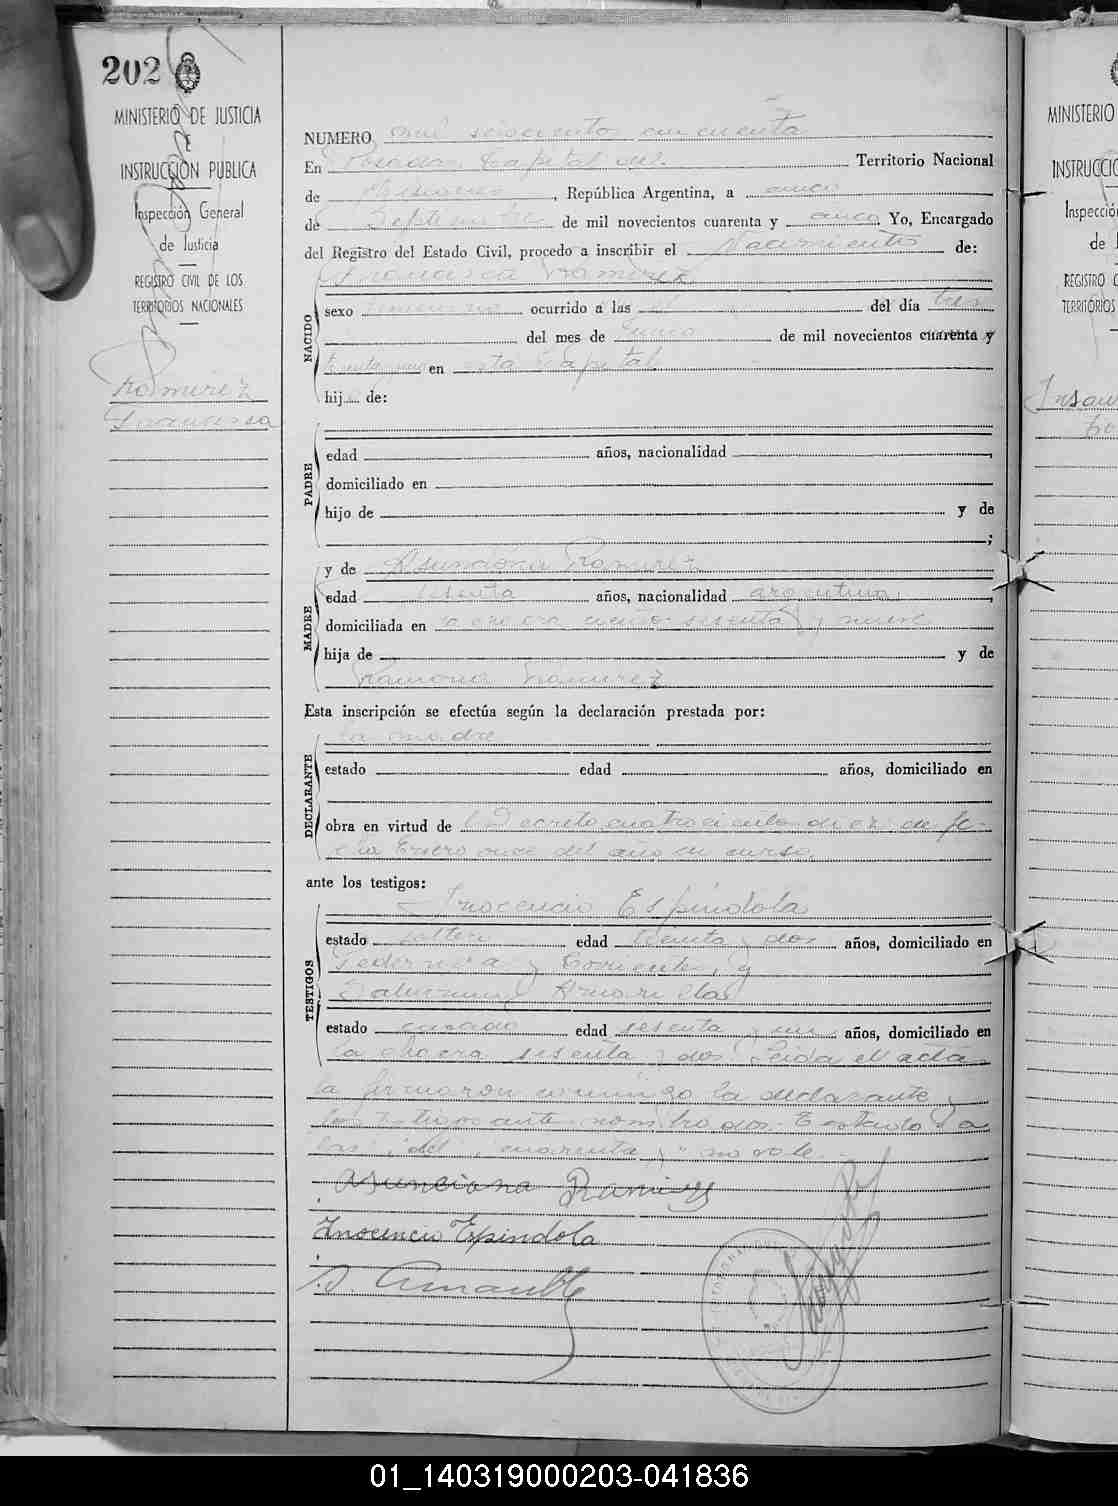 202
MINISTERIO DE JUSTICIA
E
INSTRUCCIÓN PUBLICA
Inspección General
de Justicia
REGISTRO CIVIL DE LOS
TERRITORIOS NACIONALES
Ramirez
Francisca
NUMERO mil seiscientos cincuenta
En Posadas Capital del Territorio Nacional
de Misiones, República Argentina, a cinco
de Septiembre de mil novecientos cuarenta y cinco Yo, Encargado
del Registro del Estado Civil, procedo a inscribir el Nacimiento de:
Francisca Ramirez
NACIDO
sexo femenino ocurrido a las del día tres
del mes de Junio de mil novecientos cuarenta y
treinta y uno en esta Capital
hij de:
PADRE
edad años, nacionalidad
domiciliado en
hijo de y de
;
MADRE
y de Asunciona Ramirez
edad sesenta años, nacionalidad argentina,
domiciliada en la chacra ciento sesenta y nueve
hija de y de
Ramona Ramirez
Esta inscripción se efectúa según la declaración prestada por:
DECLARANTE
la madre
estado edad años, domiciliado en
obra en virtud de Decreto cuatrocientos diez de fe-
cha Enero once del año en curso.
ante los testigos:
TESTIGOS
Inocencio Espindola
estado soltero edad treinta y dos años, domiciliado en
Federación y Corrientes, y
Saturnino
estado casado edad sesenta y un años, domiciliado en
la chacra sesenta y dos Leida el acta
la firmaron conmigo la declarante y
los testigos ante nombrados. Testado "a
las", "del", "cuarenta y" no vale.
Asunciona Ramirez
Inocencio Espindola
MINISTERIO
INSTRUCCIÓ
Inspección
de J
REGISTRO C
TERRITORIOS
01_140319000203-041836